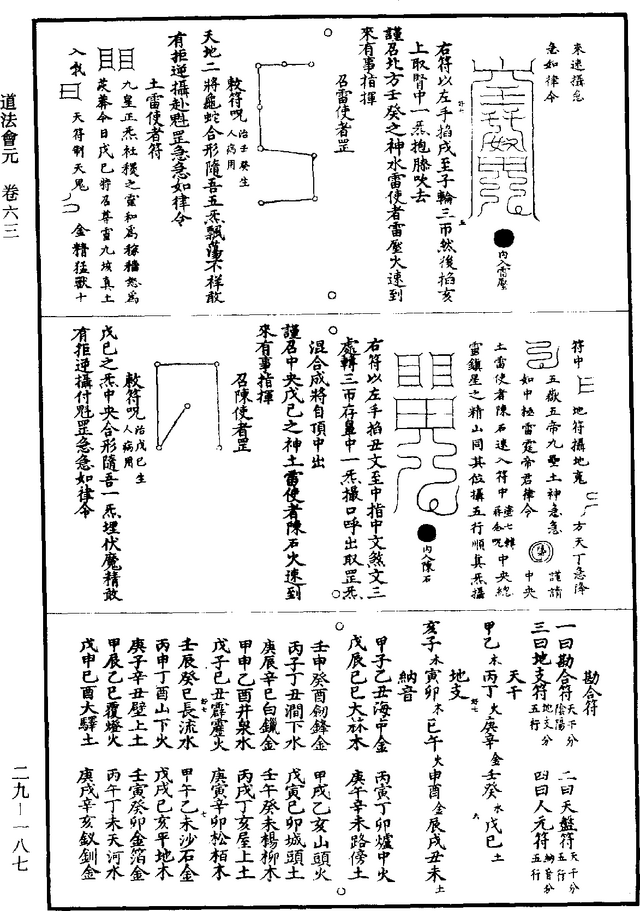 道法會元　卷六三
來速攝急
急如律令
內入雷壓
右符以左手掐戌至子輪三帀然後掐亥
上取腎中一炁抱膝吹去
謹召北方壬癸之神水雷使者雷壓火速到
來有事指揮
召雷使者罡
敕符呪治壬癸生人病用
天地二將龜蛇合形隨吾五炁飄蕩不祥敢
有拒逆攝赴魁罡急急如律令
土雷使者符
九皇正炁社稷之靈和為稼穡怒為
茂莽令日戊己將召尊靈九垓真土
入我　天符制天鬼　金精猛獸十
符中　地符攝地鬼　方天丁急降
五嶽五帝九壘土神急急
如中極雷霆帝君律令　謹請　中央
土雷使者陳石速入符中　中央總
靈鎮星之精山同其位攝五行順真炁攝
內入陳石
右符以左手掐丑文至中指中文煞文三
處轉三帀存鼻中一炁撮口呼出取罡炁
混合成將自頂中出
謹召中央戊己之神土雷使者陳石火速到
來有事指揮
召陳使者罡
敕符呪治戊己生人病用
戊己之炁中央合形隨吾一炁埋伏魔精敢
有拒逆攝付魁罡急急如律令
勘合符
一曰勘合符天干分陰陽　二曰天盤符天干分五行
三曰地支符地支分五行　四曰人元符納音分五行
天干
甲乙木丙丁火庚辛金壬癸水戊己土
地支
亥子水寅卯木巳午火申酉金辰戌丑未土
納音
甲子乙丑海中金　丙寅丁卯爐中火
戊辰己巳大林木　庚午辛未路傍土
壬申癸酉劍鋒金　甲戌乙亥山頭火
丙子丁丑澗下水　戊寅己卯城頭土
庚辰辛巳白鑞金　壬午癸未楊柳木
甲申乙酉井泉水　丙戌丁亥屋上土
戊子己丑霹靂火　庚寅辛卯松栢木
壬辰癸巳長流水　甲午乙未沙石金
丙申丁酉山下火　戊戌己亥平地木
庚子辛丑壁上土　壬寅癸卯金箔金
甲辰乙巳覆燈火　丙午丁未天河水
戊申己酉大驛土　庚戌辛亥釵釧金
二九—一八七